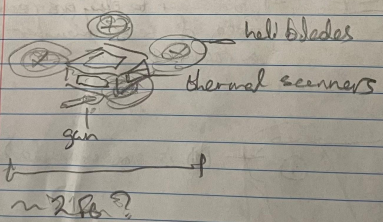 heli blades
thermal scanners
gun
~ 2ft ?